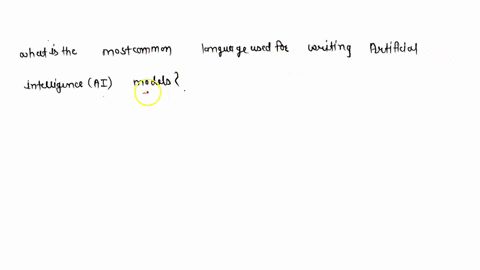 what is the most common language used for writing Artificial
intelligence (AI) models?